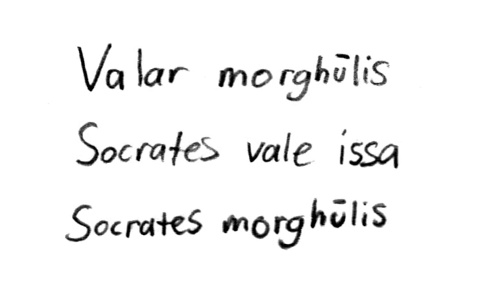 Valar morghūlis
Socrates vale issa
Socrates morghūlis